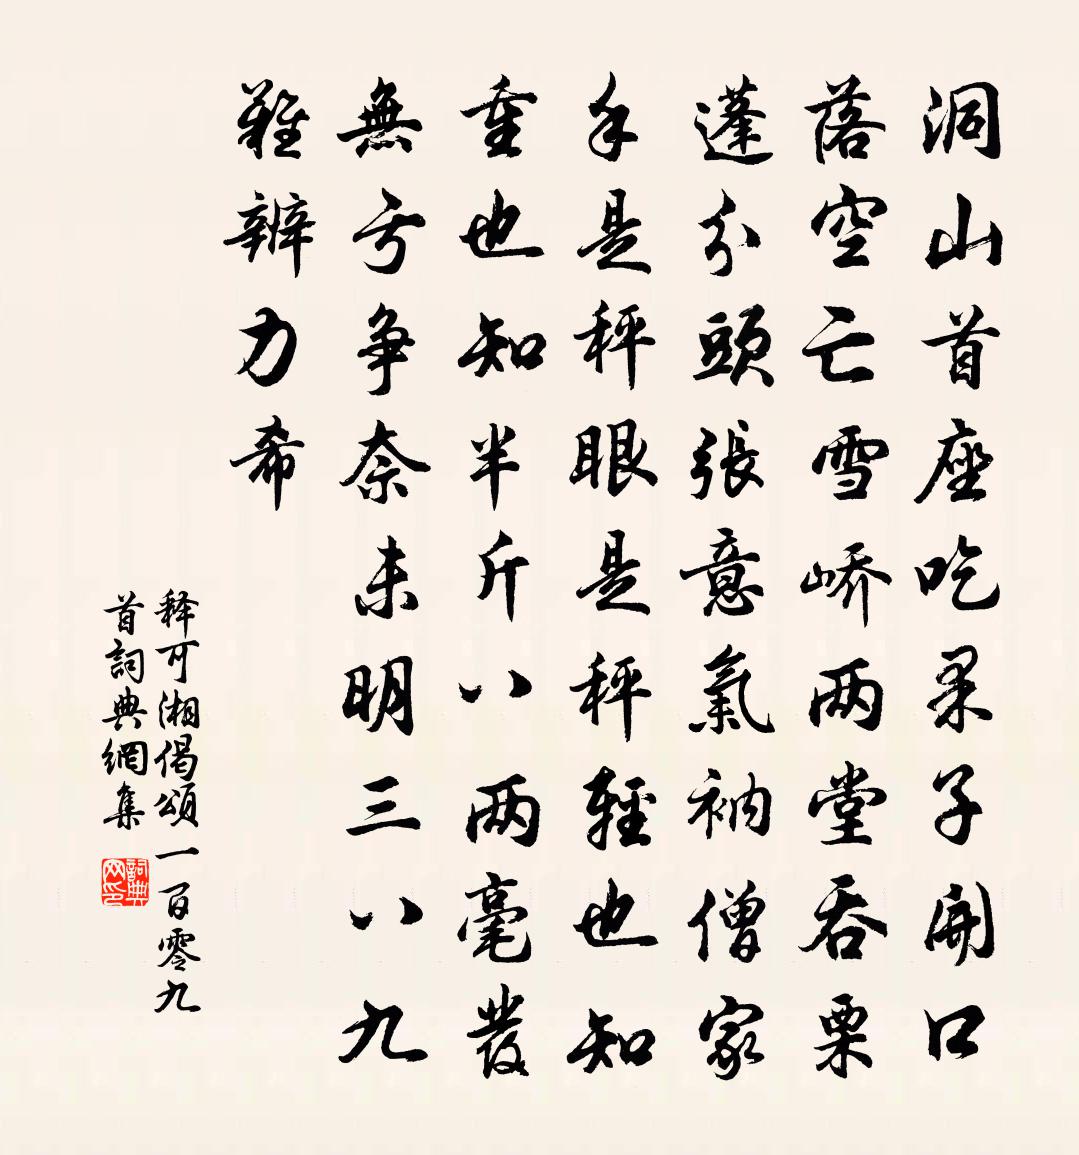 洞山首座吃果子開口
落空亡雪峤两堂吞栗
蓬分頭張意氣衲僧家
手是秤眼是秤輕也知
重也知半斤八两毫發
無亏争奈未明三八九
難辨力希
释可湘偈頌一百零九
首詞典網集
詞典
网印